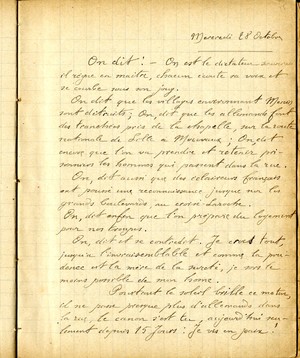 Mercredi 28 Octobre
On dit ! - On est le dictateur
il règne en maître, chacun écoute sa voix et
se courbe sous son joug.
On dit que les villages environnant
sont détruits ; On dit que les allemands font
des tranchées près de la chapelle, sur la route
nationale de Lille à ; On dit
encore, que l'on va prendre et retenir pri-
sonniers les hommes qui passent dans la rue.
On dit aussi que des éclaireurs français
ont poussé une reconnaissance jusque sur les
grands boulevards, au
On dit enfin que l'on prépare du logement
pour nos troupes.
On dit et se contredit. Je crois tout,
jusqu'à l'invraisemblable et comme la pru-
dence est la mère de la sûreté, je sors le
moins possible de mon home.
Pourtant le soleil brille ce matin,
il ne passe presque plus d'allemands dans
la rue, le canon s'est tu, aujourd'hui seu-
lement depuis 15 jours : Je vis en paix !